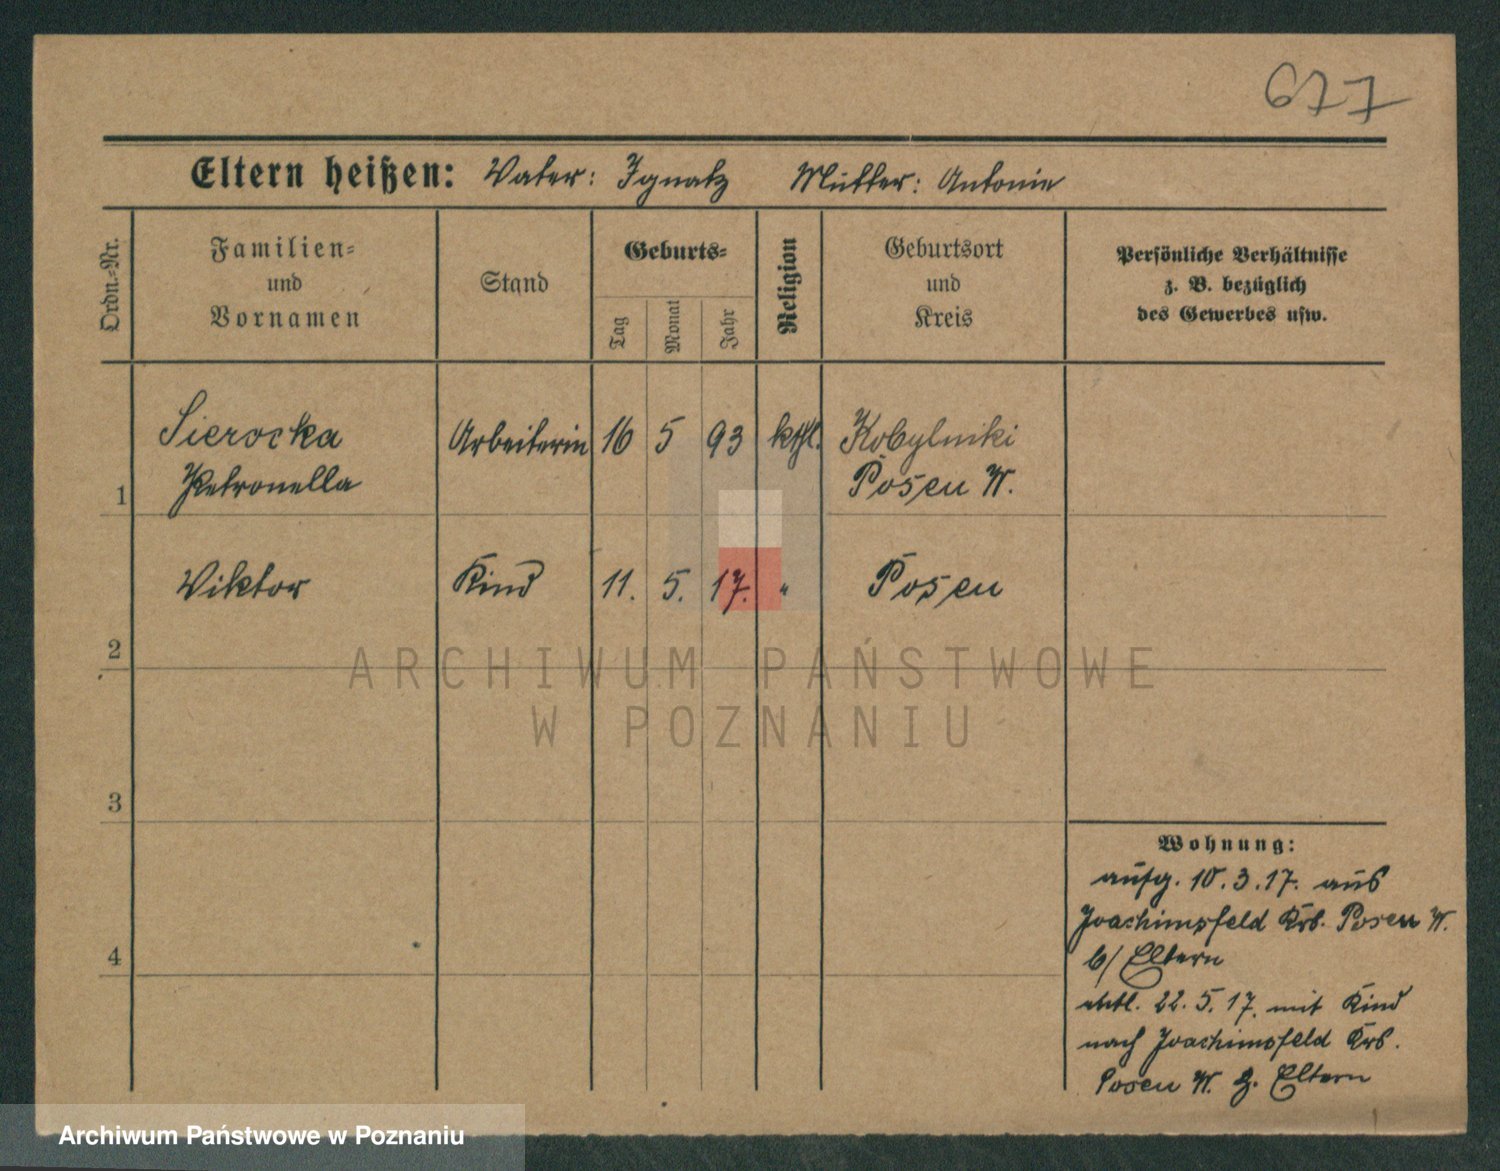 677
Eltern heißen: Vater: Ignatz Mutter: Antonie
Ordn.=Nr.
Familien=
und
Vornamen
Stand
Geburts=
Tag
Monat
Jahr
Religion
Geburtsort
und
Kreis
Persönliche Verhältnisse
z. B. bezüglich
des Gewerbes usw.
1
Sierocka Arbeiterin 16 5 93 kthl. Kobylniki
Petronella Posen W.
2
Viktor Kind 11. 5. 17. " Posen
3
4
Wohnung:
aufg. 10.3.17. aus
Joachimsfeld Krs. Posen W.
b/ Eltern
entl. 22.5.17. mit Kind
nach Joachimsfeld Krs.
Posen W. z. Eltern
ARCHIWUM PAŃSTWOWE
W POZNANIU
Archiwum Państwowe w Poznaniu